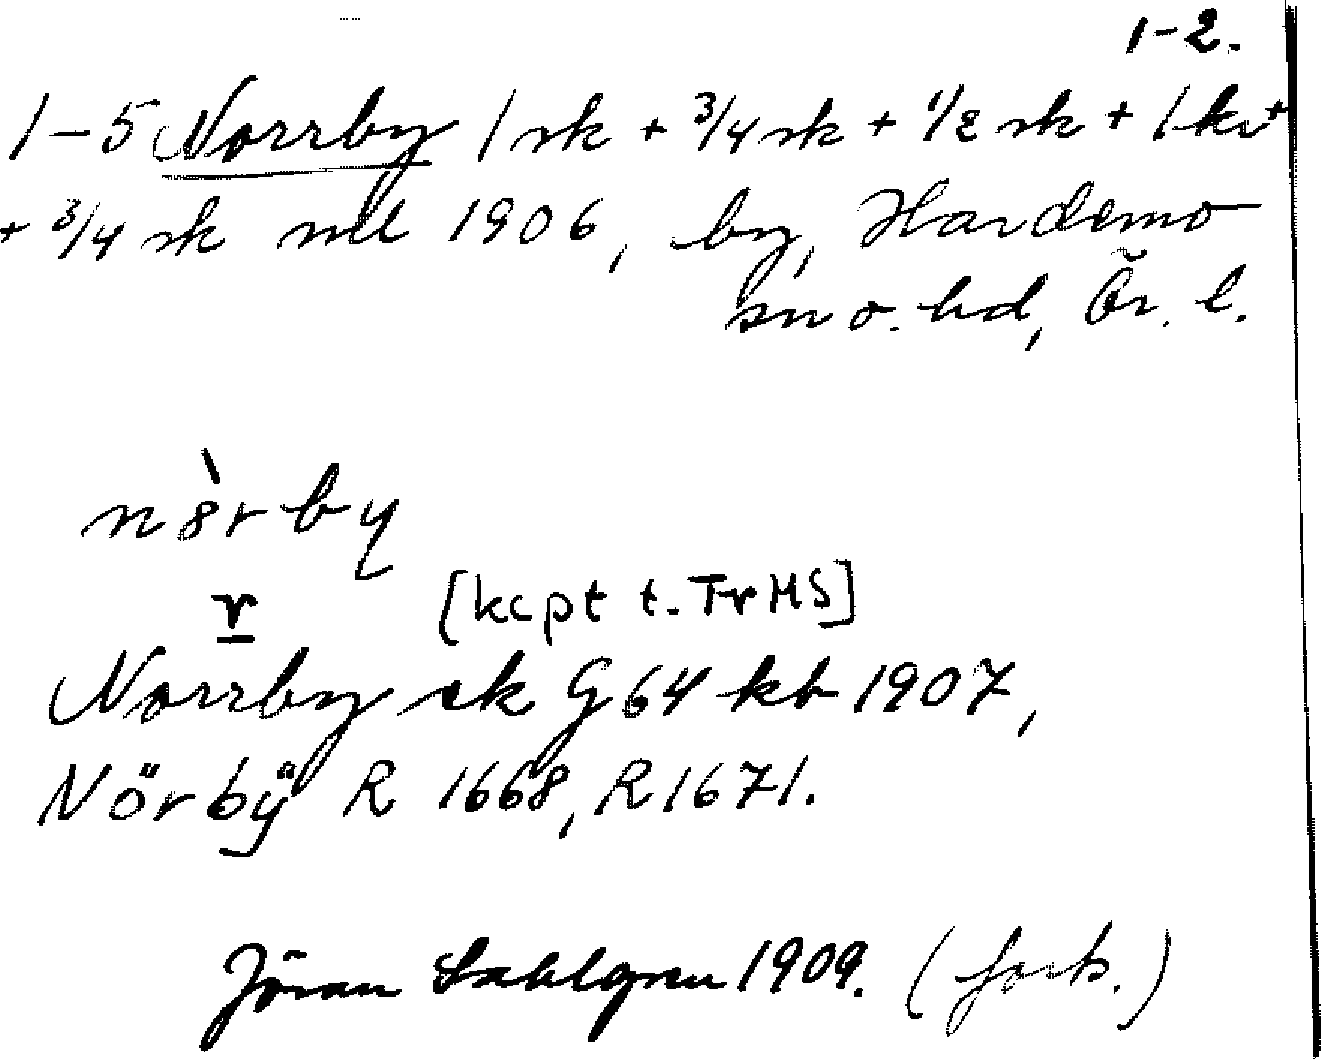 1-2.
1-5 Norrby 1 sk + 3/4 sk + 1/2 sk + 1 kv +
+ 3/4 sk mtl 1906, by, Hardemo
sn o. hd, Ör. l.
nòrby
r [kcpt t. TrMS]
Norrby sk G 64 kb 1907,
Nörbÿ R 1668, R 1671.
Jöran Sahlgren 1909. (forts.)